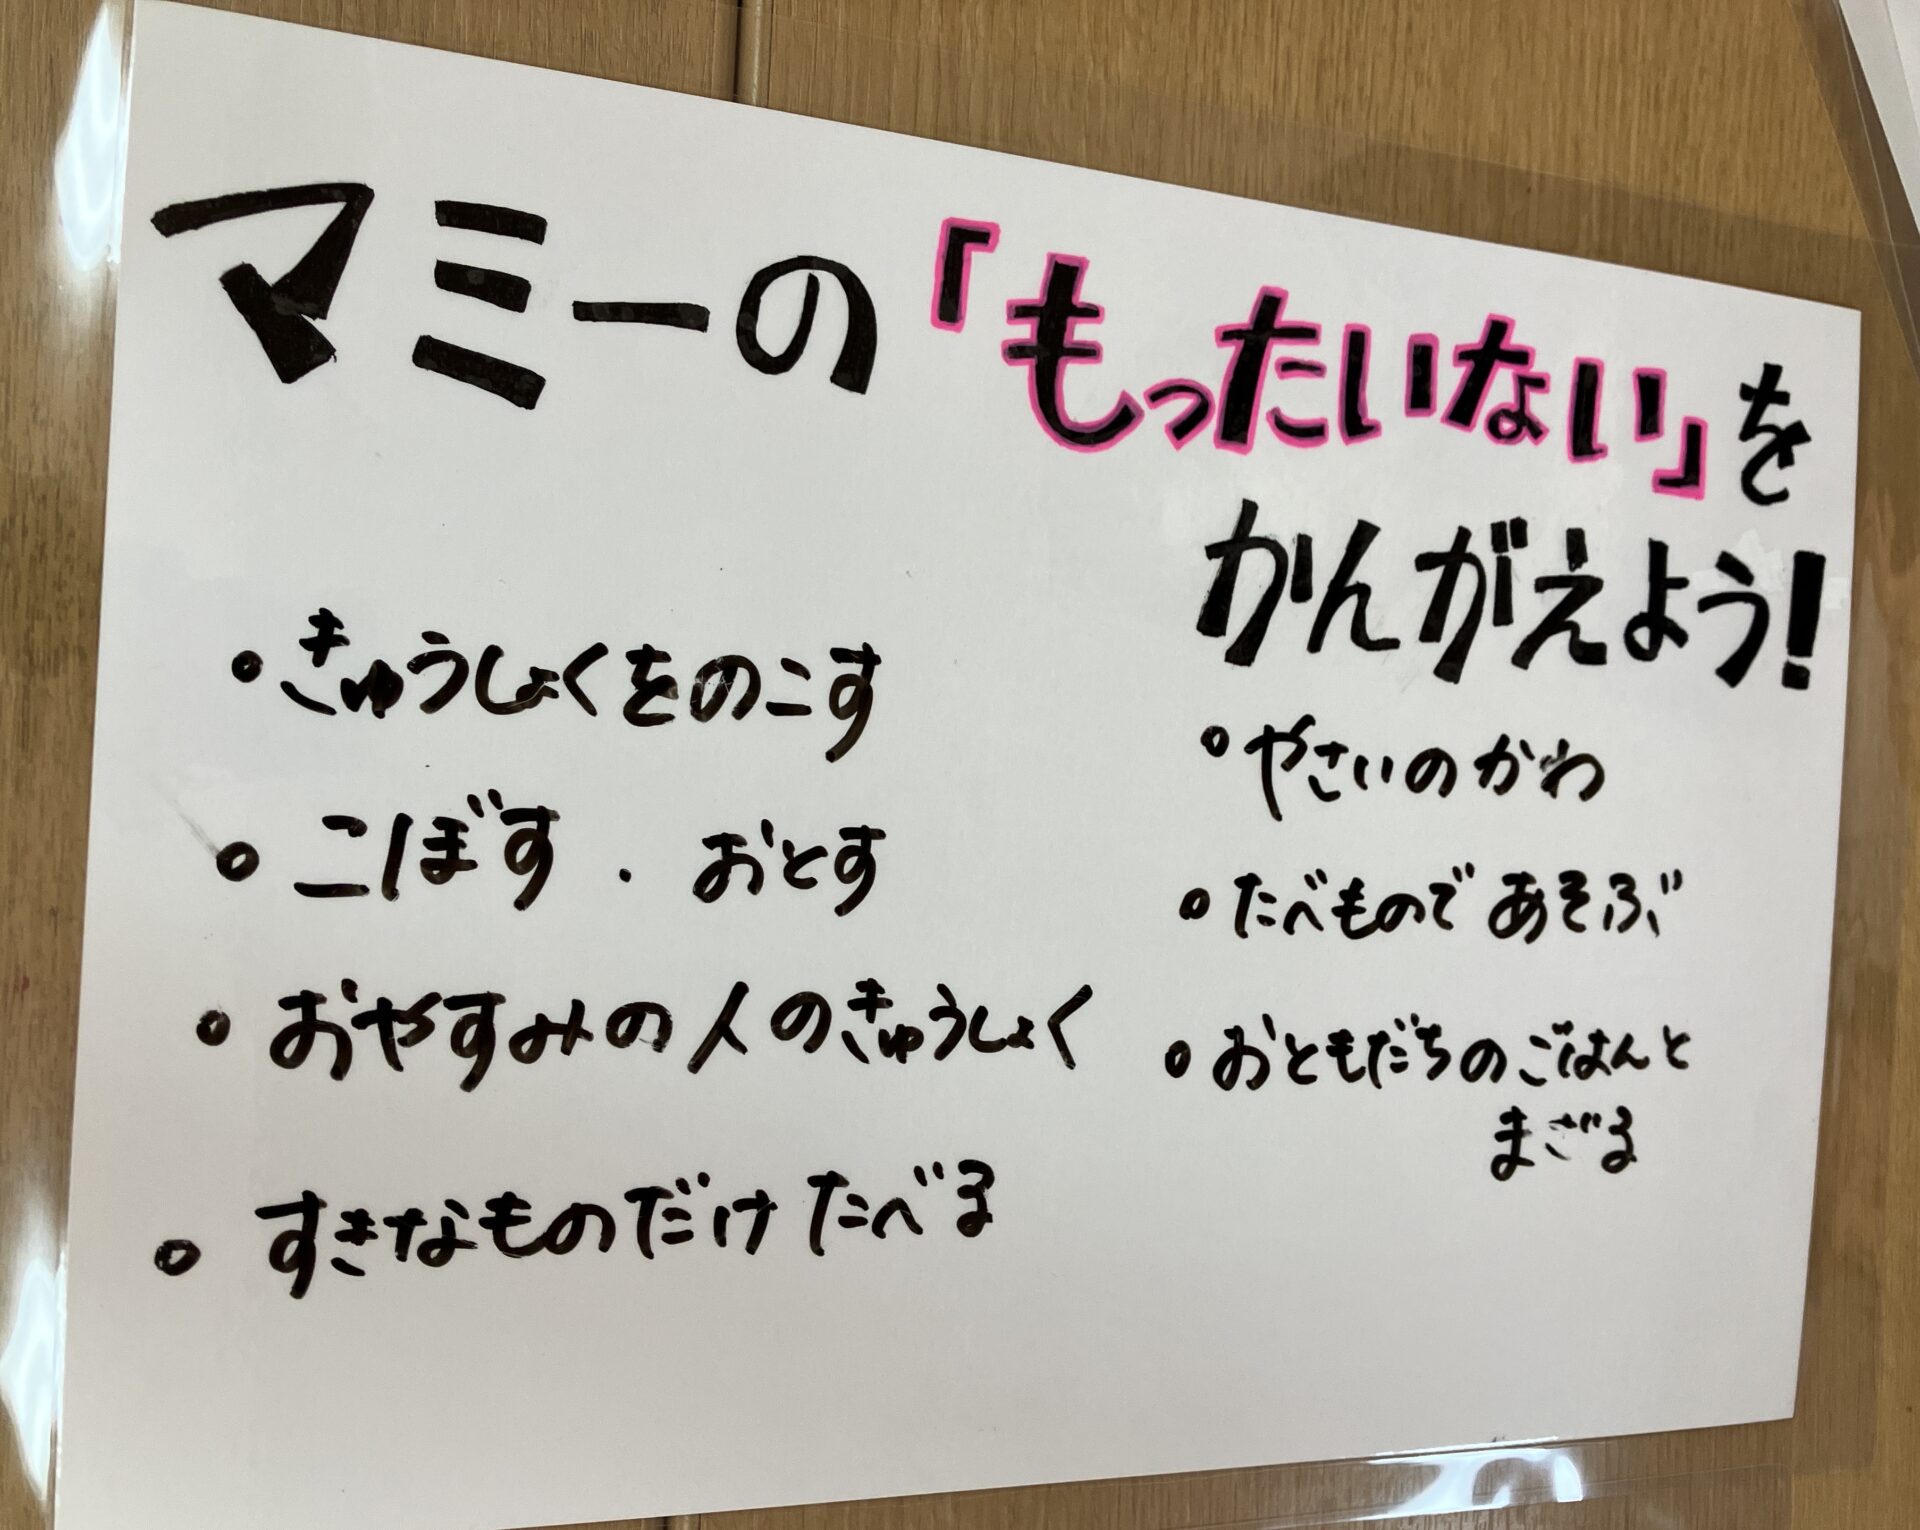 マミーの「もったいない」を
かんがえよう!
• きゅうしょくをのこす
• こぼす・おとす
• おやすみの人のきゅうしょく
• すきなものだけ たべる
• やさいのかわ
• たべものであそぶ
• おともだちのごはんと
まざる